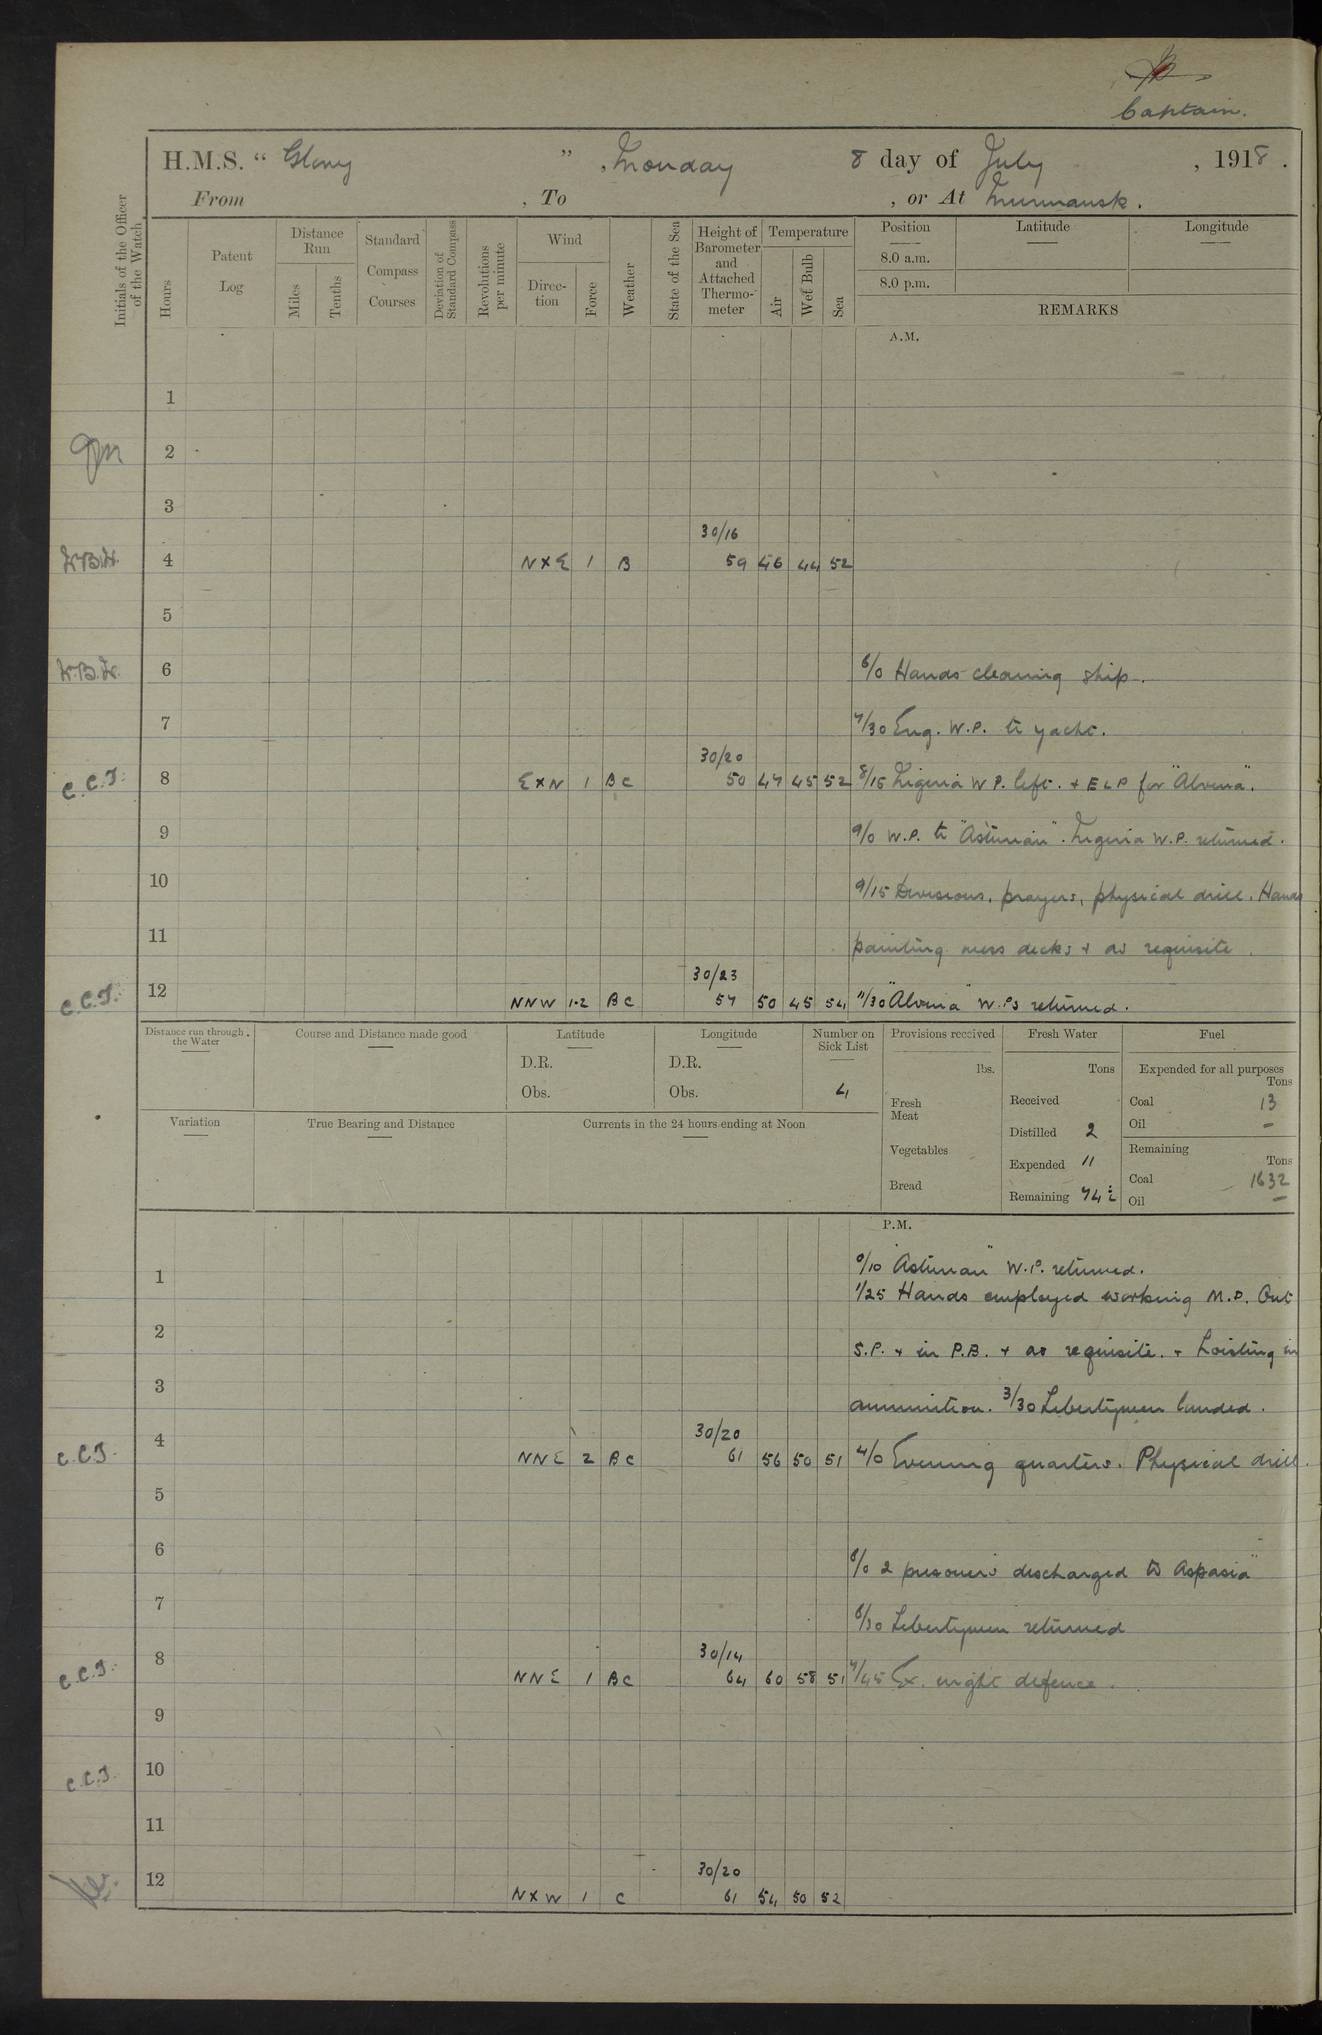 Captain.
H.M.S. “ Glory ” , Monday 8 day of July , 1918 .
From , To , or At Murmansk .
Initials of the Officer of the Watch.
Hours
Patent Log
Distance Run
Miles
Tenths
Standard Compass Courses
Deviation of Standard Compass
Revolutions per minute
Wind
Direc-tion
Force
Weather
State of the Sea
Height of Barometer and Attached Thermo-meter
Temperature
Air
Wet Bulb
Sea
Position
8.0 a.m.
8.0 p.m.
Latitude
Longitude
REMARKS
A.M.
1
2
3
30/16
W.B.H. 4 N X E 1 B 59 46 44 52
5
W.B.H. 6 6/0 Hands cleaning ship.
7 7/30 Eng. W.P. to yacht.
30/20
C.C.T. 8 E X N 1 BC 50 47 45 52 8/15 Nigeria W P. left. + E L P for "Alvina".
9 9/0 W.P. to "Asturian". Nigeria W.P. returned.
10 9/15 Divisions, prayers, physical drill. Hands
11 painting mess decks + as requisite.
30/23
C.C.T. 12 NNW 1-2 BC 57 50 45 54 11/30 "Alvina" W.Ps returned.
Distance run through the Water
Course and Distance made good
Latitude
D.R.
Obs.
Longitude
D.R.
Obs.
Number on Sick List
4
Provisions received
lbs.
Fresh Meat
Vegetables
Bread
Fresh Water
Tons
Received
Distilled 2
Expended 11
Remaining 74½
Fuel
Expended for all purposes
Tons
Coal 13
Oil –
Remaining
Tons
Coal 1632
Oil –
Variation
True Bearing and Distance
Currents in the 24 hours ending at Noon
P.M.
0/10 "Asturian" W.P. returned.
1 1/25 Hands employed working M.D. Out
2 S.P. + in P.B. + as requisite. + hoisting in
3 ammunition. 3/30 Libertymen landed.
30/20
C.C.T. 4 NNE 2 BC 61 56 50 51 4/0 Evening quarters. Physical drill.
5
6 6/0 2 prisoners discharged to Aspasia"
7 6/30 Libertymen returned
30/14
C.C.T. 8 NNE 1 BC 64 60 58 51 7/45 Ex. night defence.
9
C.C.T. 10
11
30/20
12 N X W 1 C 61 54 50 52